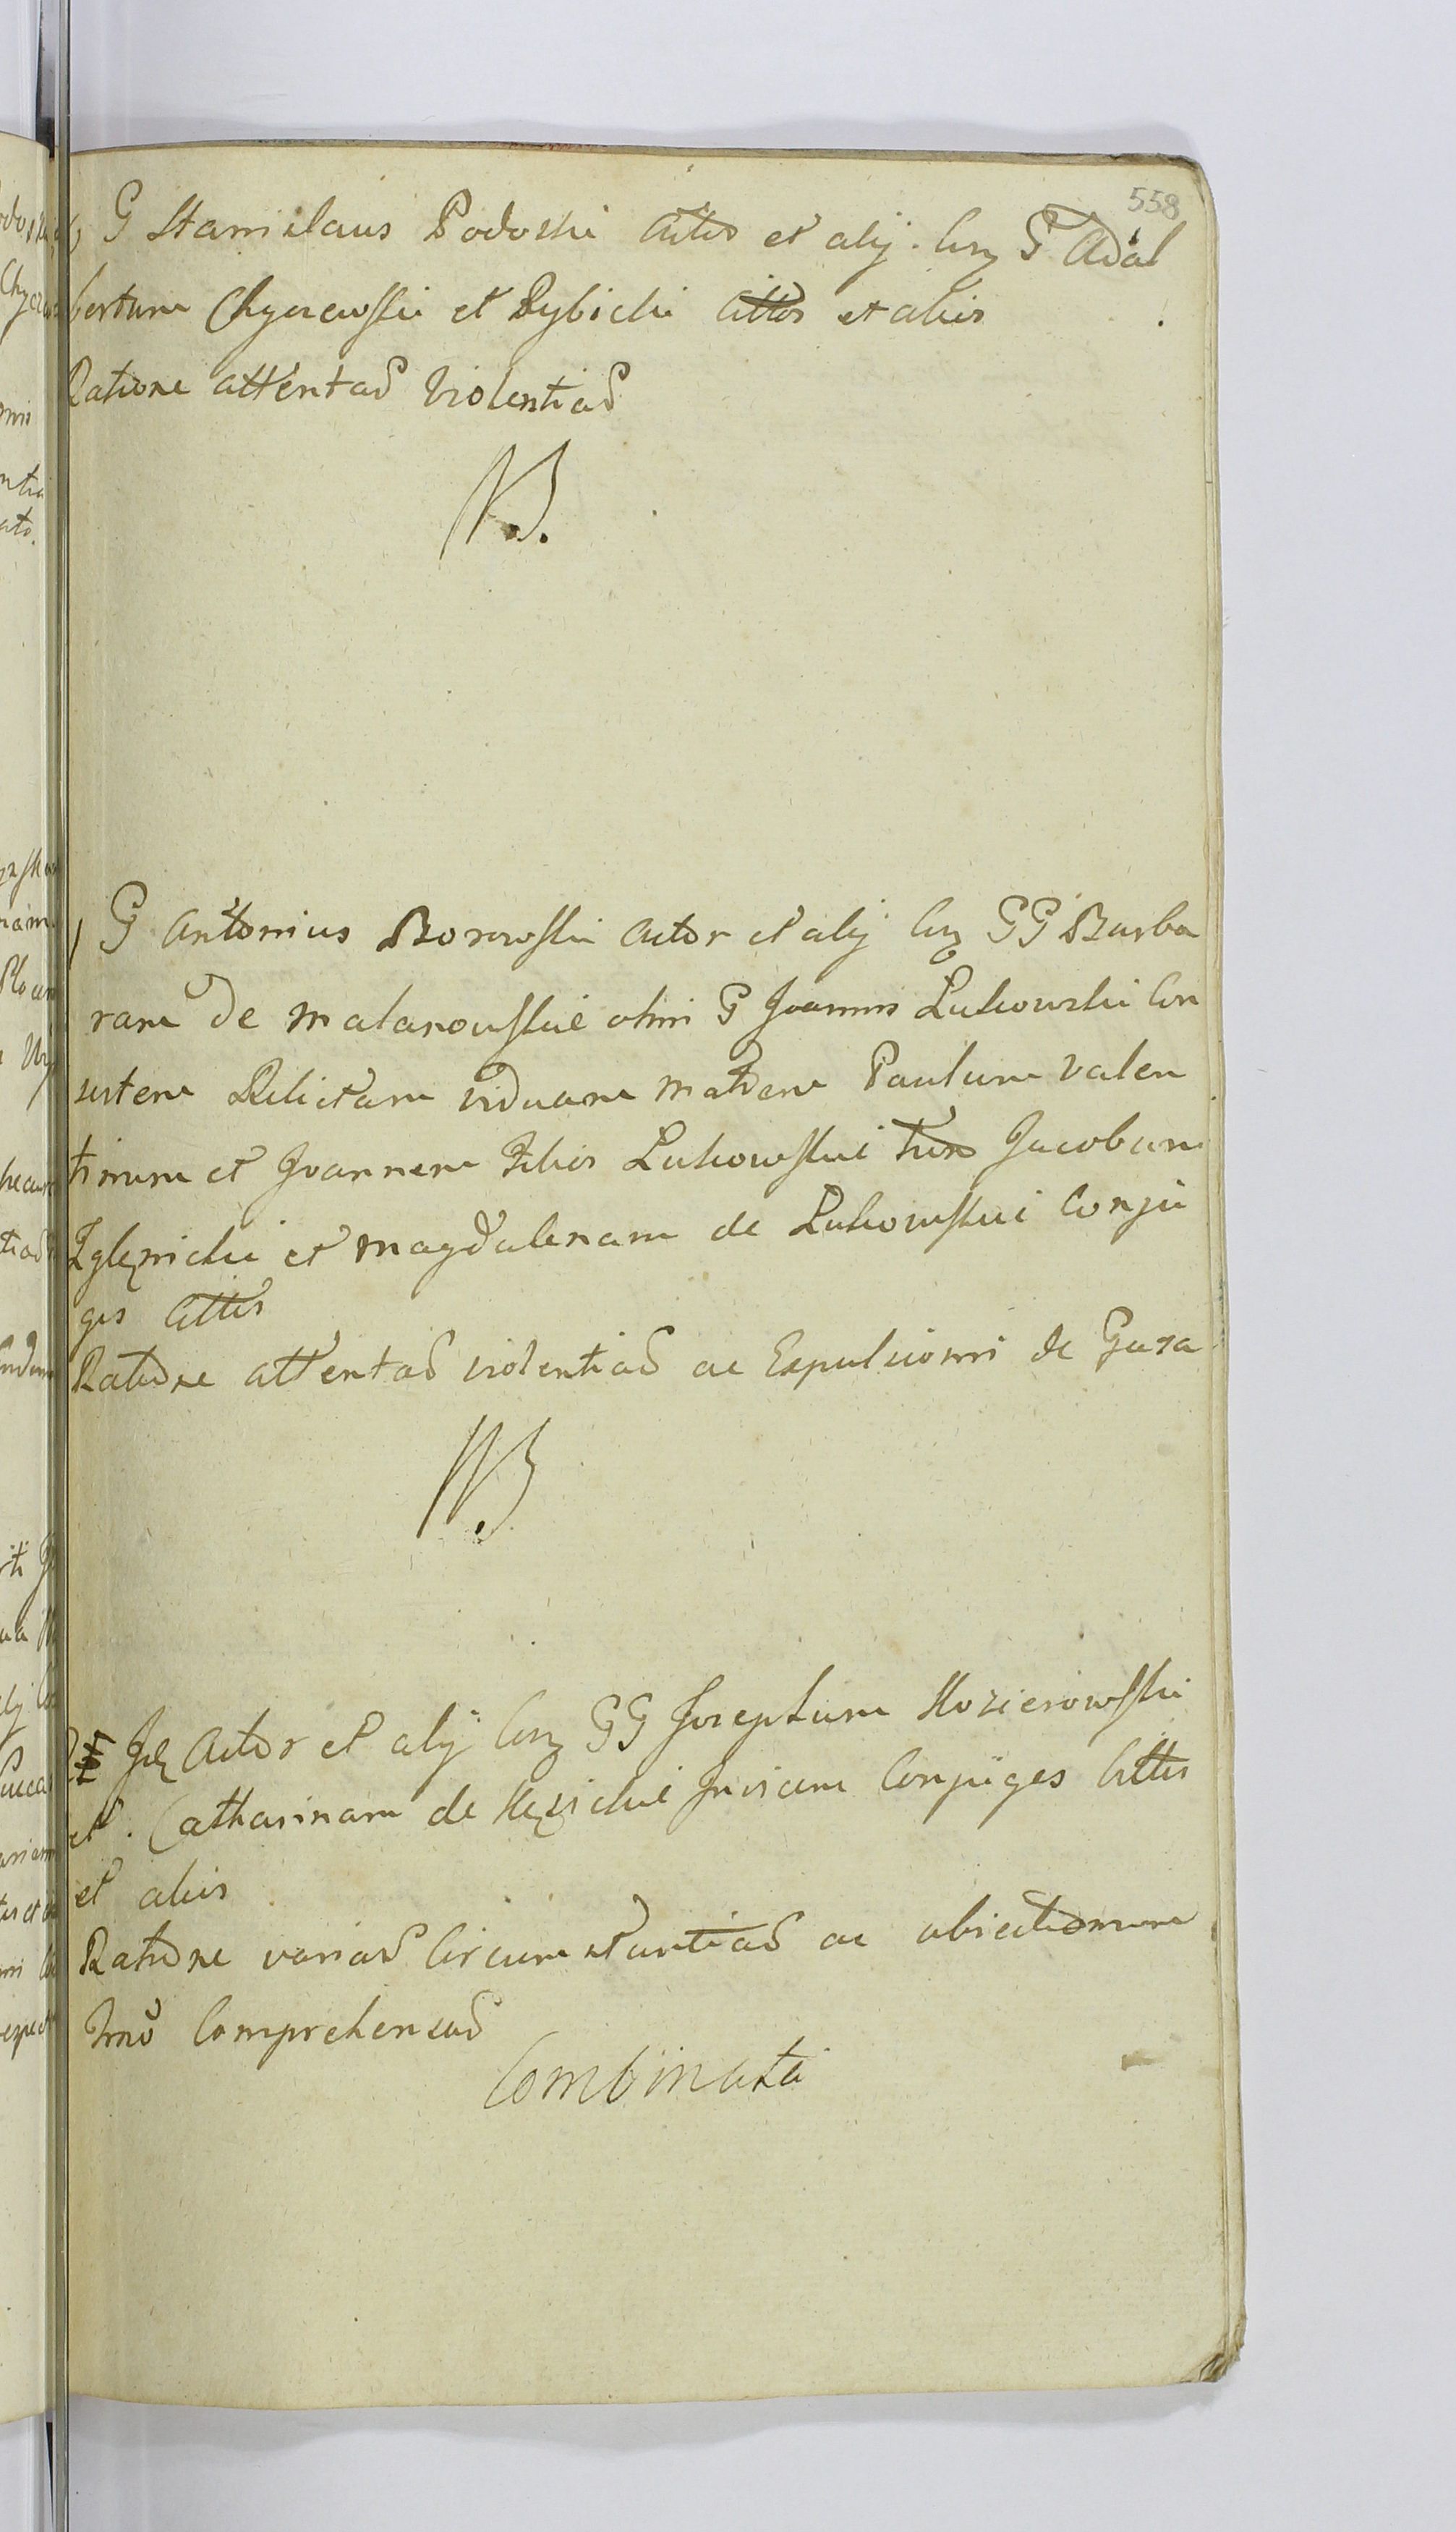 558
G Stanislaus Podoski Actor et alij Cnz G Adal
bertum Chyczewski et Rybicki Cittos et alios
Ratione attentad violentiad
NB.
G Antonius Borowski Actor et alij Cnz GG Barba
ram de Malanowskie olim G Joannis Lukowski Con
sortem Relictam viduam matrem Paulum Valen
tinum et Joannem Filios Lukowskie tum Jacobum
Zglenicki et Magdalenam de Lukowskie Conju
ges Cittos
Ratione attentad violentiad ac Expulsionis de Gaza
NB
Id Actor et alij Cnz GG Josephum Kozierowski
et Catharinam de invicem Conjuges Cittos
et alios
Ratione variad Circumstantiad ac obiectionum
Comprehensad
Combinata